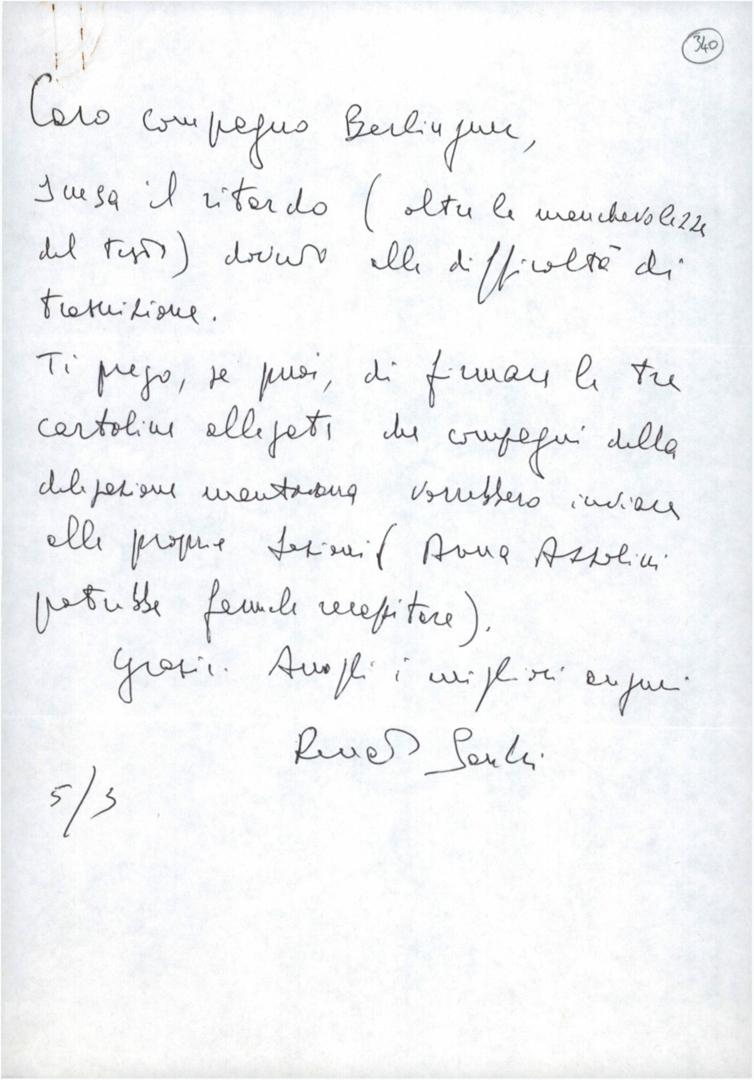 340
Caro compagno Berlinguer,
scusa il ritardo ( oltre le manchevolezze
del testo) dovuto alle difficoltà di
trasmissione.
Ti prego, se puoi, di firmare le tre
cartoline allegate che compagni della
delegazione mantovana vorrebbero inviare
alle proprie sezioni ( Anna Azzolini
potrebbe farmele recapitare).
Grazie. Auguri i migliori auguri
Renato Sandri
5/3